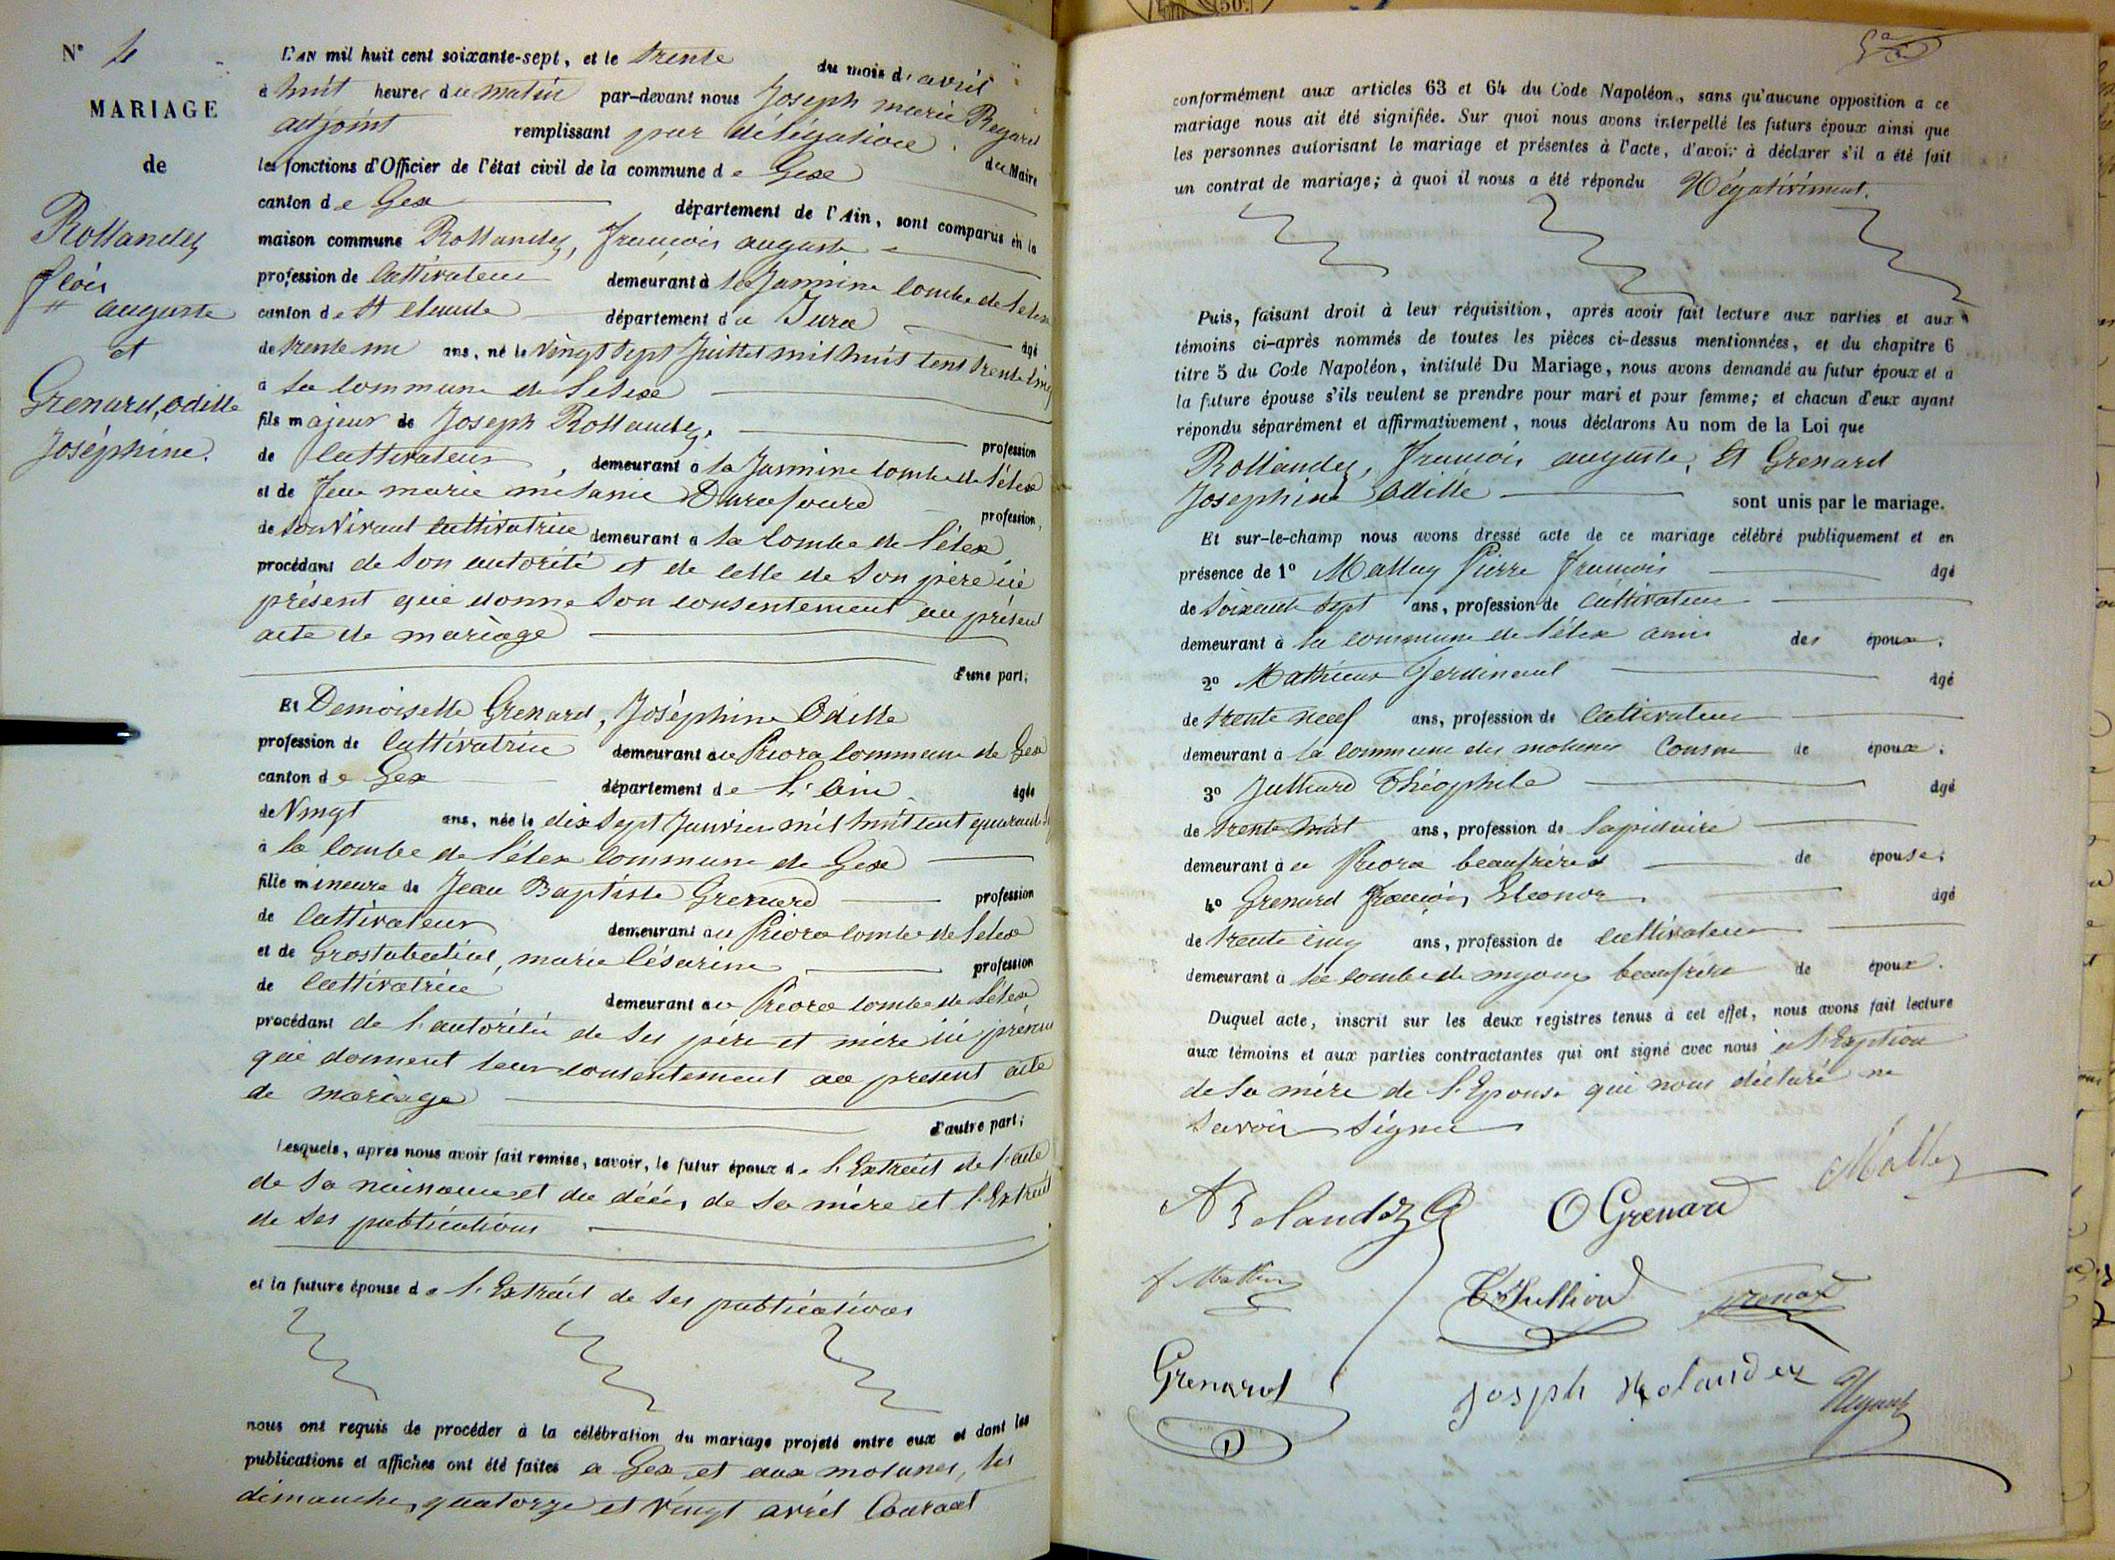 N° 4
MARIAGE
de
Rollandez
fcois
auguste
et
Grenard, Odille
Joséphine.
L'AN mil huit cent soixante-sept, et le trente du mois d'avril
à huit heures du matin par-devant nous Joseph marie Regard
adjoint remplissant par délégation du Maire
les fonctions d'Officier de l'état civil de la commune de Gex
canton de Gex département de l'Ain, sont comparus en la
maison commune Rollandez, François auguste
profession de Cultivateur demeurant à la Jasmine Combe de Lelex
canton de St Claude département du Jura âgé
de trente un ans, né le Vingt Sept Juillet mil huit cent trente cinq
à la Commune de Lelex
fils majeur de Joseph Rollandez,
profession
de Cultivateur, demeurant à la Jasmine Combe de Lélex
et de feue marie mélanie Durafourd
profession,
de Son Vivant Cultivatrice demeurant à la Combe de Lélex
procédant de Son autorité et de celle de Son père ici
présent qui donne Son consentement au présent
acte de mariage
d'une part;
Et Demoiselle Grenard, Joséphine Odille
profession de Cultivatrice demeurant au Commune de Gex
canton de Gex département de L'Ain âgée
de Vingt ans, née le dix Sept Janvier mil huit cent quarante
à la Combe de Lélex Commune de Gex
fille mineure de Jean Baptiste Grenard profession
de Cultivateur demeurant au Combe de Lelex
et de marie Césarine profession
de Cultivatrice demeurant au Combe de Lélex
procédant de l'autorité de Ses père et mère ici présent
qui donnent leur consentement au présent acte
de mariage
d'autre part;
Lesquels, après nous avoir fait remise, savoir, le futur époux de l'Extrait de l'acte
de Sa naissance et du décés de Sa mère et l'Extrait
de Ses publications
et la future épouse de l'Extrait de Ses publications
nous ont requis de procéder à la célébration du mariage projeté entre eux et dont les
publications et affiches ont été faites a Gex et aux molunes, les
dimanches quatorze et Vingt avril Courant
conformément aux articles 63 et 64 du Code Napoléon, sans qu'aucune opposition à ce
mariage nous ait été signifiée. Sur quoi nous avons interpellé les futurs époux ainsi que
les personnes autorisant le mariage et présentes à l'acte, d'avoir à déclarer s'il a été fait
un contrat de mariage; à quoi il nous a été répondu Négativement.
Puis, faisant droit à leur réquisition, après avoir fait lecture aux parties et aux
témoins ci-après nommés de toutes les pièces ci-dessus mentionnées, et du chapitre 6
titre 5 du Code Napoléon, intitulé Du Mariage, nous avons demandé au futur époux et à
la future épouse s'ils veulent se prendre pour mari et pour femme; et chacun d'eux ayant
répondu séparément et affirmativement, nous déclarons Au nom de la Loi que
Rollandez, François auguste, Et Grenard
Joséphine Odille sont unis par le mariage.
Et sur-le-champ nous avons dressé acte de ce mariage célébré publiquement et en
présence de 1° Pierre François âgé
de Soixante Sept ans, profession de Cultivateur
demeurant à la commune de Lélex ami des époux.
2° Mathieu Ferdinand âgé
de trente neuf ans, profession de Cultivateur
demeurant à la Commune des molunes Cousin de époux.
3° Julliard Théophile âgé
de trente huit ans, profession de Lapidaire
demeurant à beaufrère de épouse.
4° Grenard François Eléonor âgé
de trente cinq ans, profession de cultivateur
demeurant à la combe de mijoux beaufrère de époux.
Duquel acte, inscrit sur les deux registres tenus à cet effet, nous avons fait lecture
aux témoins et aux parties contractantes qui ont signé avec nous
de la mère de l'Epouse qui nous déclaré ne
Savoir Signer
A Rolandez O Grenard
Grenard Joseph Rolandez Regard